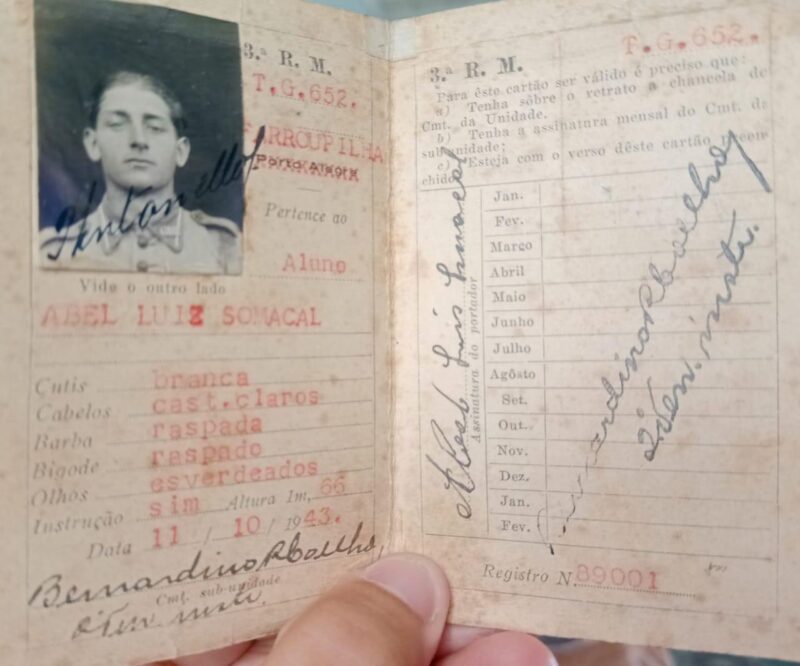 3.ª R. M.
T.G.652.
FARROUPILHA
Porto Alegre
Pertence ao
Aluno
Vide o outro lado
ABEL LUIZ SOMACAL
Cutis branca
Cabelos cast.claros
Barba raspada
Bigode raspado
Olhos esverdeados
Instrução sim Altura 1m, 66
Data 11 / 10 / 1943.
Bernardino R Coelho,
Cmt. sub-unidade
2º Ten. instr.
3.ª R. M.
T.G.652.
Para êste cartão ser válido é preciso que:
a) Tenha sôbre o retrato a chancela do
Cmt. da Unidade.
b) Tenha a assinatura mensal do Cmt. da
sub unidade;
c) Esteja com o verso dêste cartão preen-
chido.
Abel Luis Somacal
Assinatura do portador
Jan.
Fev.
Março
Abril
Maio
Junho
Julho
Agôsto
Set.
Out.
Nov.
Dez.
Jan.
Fev.
Bernardino R Coelho,
2º Ten. instr.
Registro N. 89001